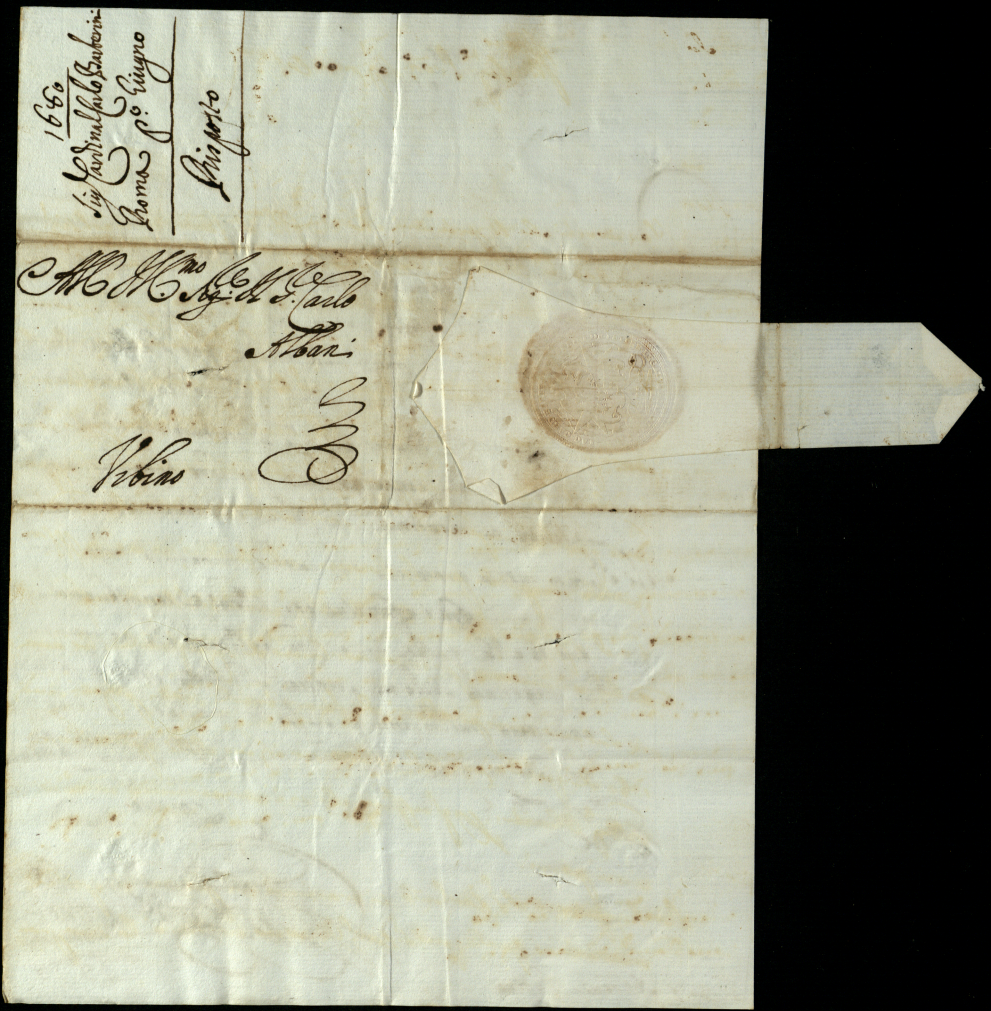 1680
Sig Cardinal Carlo Barberini
Roma P.º Giugno
Risposto
All Ill.mo Sig.re il S.r Carlo
Albani
Vrbino